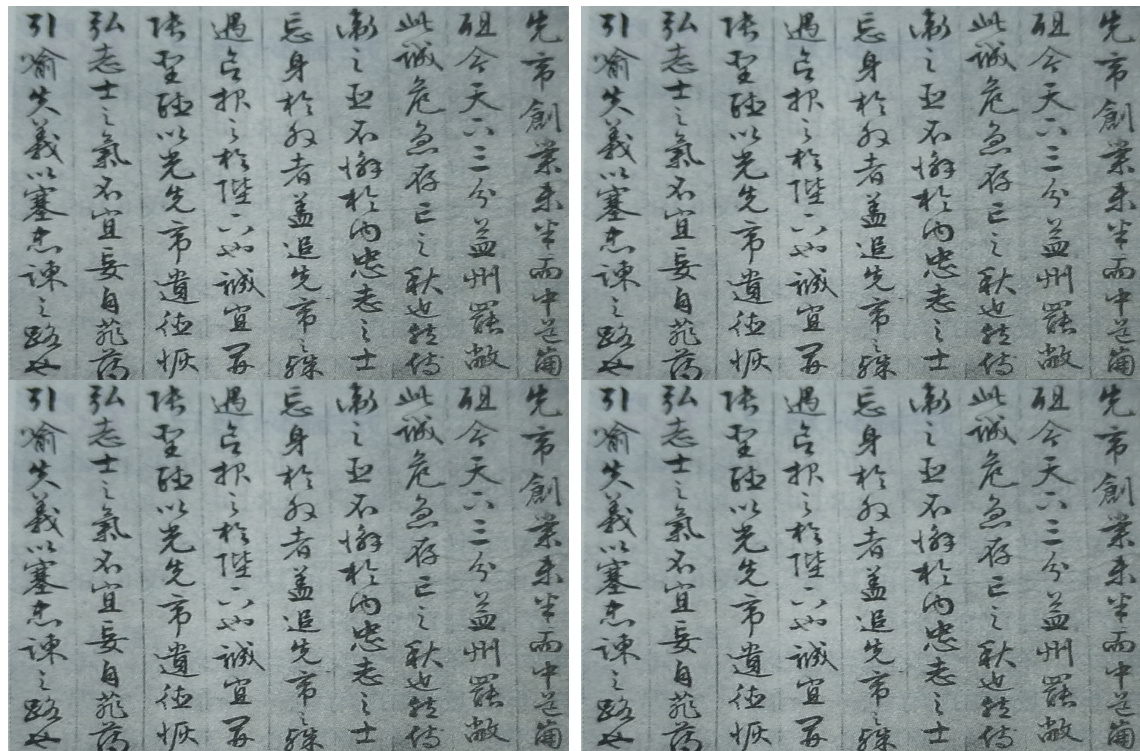 先帝創業未半而中道崩
殂今天下三分益州罷敝
此誠危急存亡之秋也然侍
衛之臣不懈於內忠志之士
忘身於外者蓋追先帝之殊
遇報之於陛下也誠宜開
張聖聽以光先帝遺德恢
弘志士之氣不宜妄自菲薄
引喻失義以塞忠諫之路也
先帝創業未半而中道崩
殂今天下三分益州罷敝
此誠危急存亡之秋也然侍
衛之臣不懈於內忠志之士
忘身於外者蓋追先帝之殊
遇報之於陛下也誠宜開
張聖聽以光先帝遺德恢
弘志士之氣不宜妄自菲薄
引喻失義以塞忠諫之路也
先帝創業未半而中道崩
殂今天下三分益州罷敝
此誠危急存亡之秋也然侍
衛之臣不懈於內忠志之士
忘身於外者蓋追先帝之殊
遇報之於陛下也誠宜開
張聖聽以光先帝遺德恢
弘志士之氣不宜妄自菲薄
引喻失義以塞忠諫之路也
先帝創業未半而中道崩
殂今天下三分益州罷敝
此誠危急存亡之秋也然侍
衛之臣不懈於內忠志之士
忘身於外者蓋追先帝之殊
遇報之於陛下也誠宜開
張聖聽以光先帝遺德恢
弘志士之氣不宜妄自菲薄
引喻失義以塞忠諫之路也